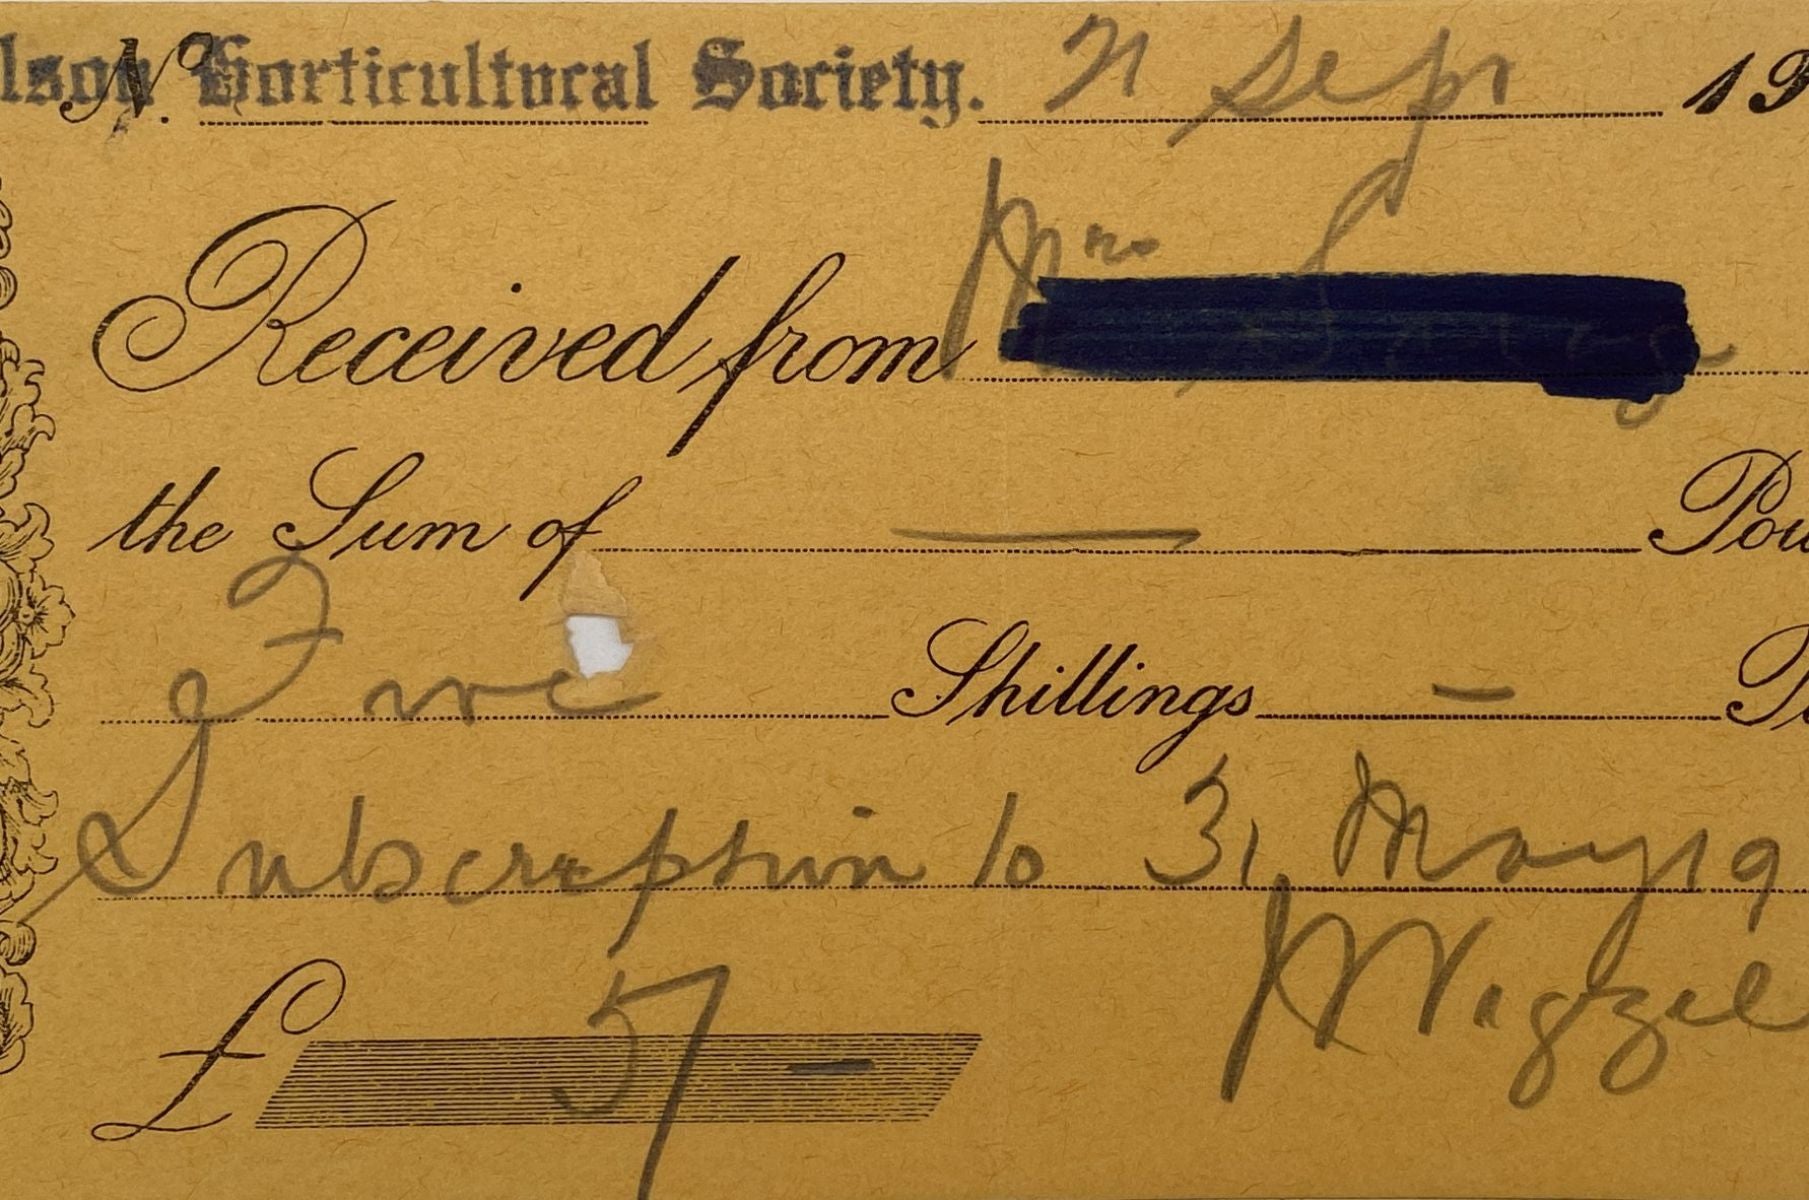 lson Nº. Horticultural Society. 21 Sept 19
Received from Mrs
the Sum of — Pou
Five Shillings - P
Subscription to 31 May 19
£ 5/-